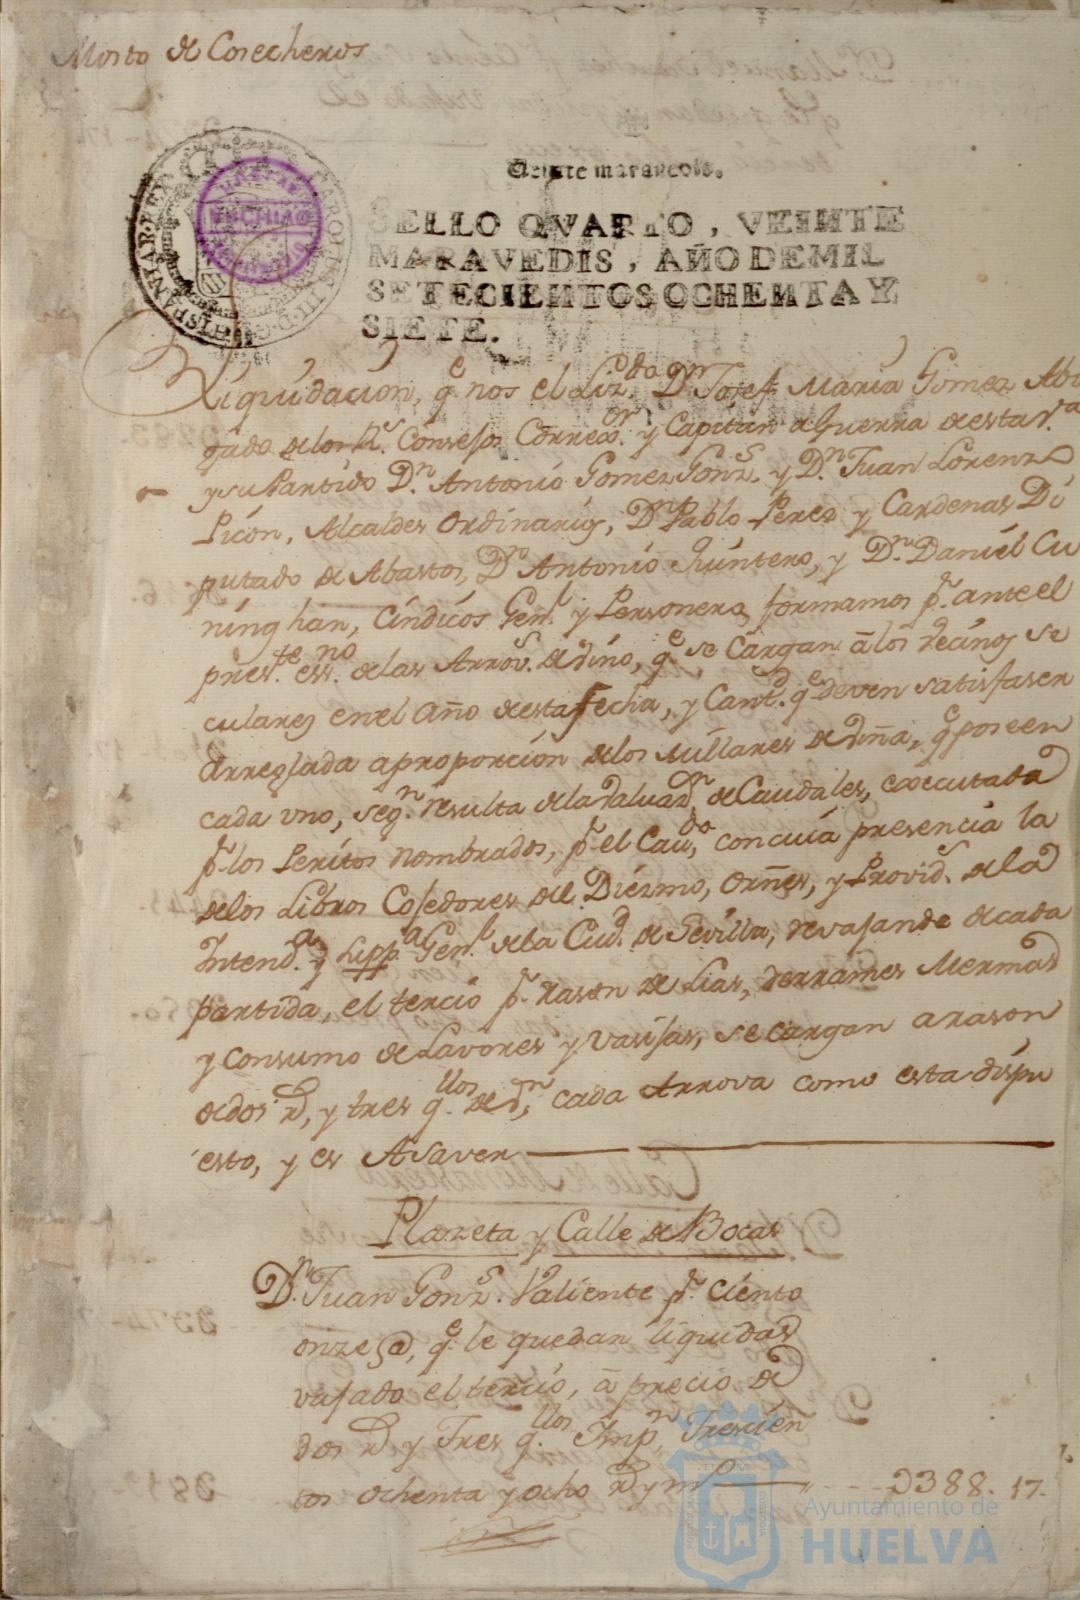 Mosto de Cosecheros
Veinte maravedis.
SELLO QVARTO, VEINTE
MARAVEDIS, AÑO DE MIL
SETECIENTOS OCHENTA Y
SIETE.
Liquidacion, q.e nos el Liz.do D.n Josef Maria Gomez Abo
gado de los R.s Consejos Correx.or y Capitan aGuerra de esta V.a
y su Partido D.n Antonio Gomez Gonz.s y D.n Juan Lorenzo
Picon, Alcaldes Ordinarios, D.n Pablo Perez y Cardenas Di
putado de Abastos, D.n Antonio Quintero, y D.n Daniel Cu
ninghan, Cindicos Gen.l y Personero, formamos p.r ante el
pres.te es.no de las Arrov.s de vino, q.e se Cargan â los vecinos se
culares en el Año de esta fecha, y Cant.d q.e deven satisfaser
Arreglada a proporcion de los Millares de viña, q.e poseen
cada uno, seg.n resulta de la valuad.n de Caudales, executada
p.r los Peritos nombrados, p.r el Cav.do, con cuia presencia la
de los Libros Cojedores del Diezmo, Orñes, y Provid.s de la
Intend.a y Supp.a Gen.l de la Ciud.d de Sevilla, revajando de cada
partida, el tercio p.r rason de Lias, derrames Mermas
y consumo de Lavores y vasijas, se cargan a rason
de dos r.s, y tres q.llos de v.n, cada Arrova como esta dispu
esto, y es A Saver
Plazeta y Calle de Bocas
D.n Juan Gonz.s Valiente p.r ciento
onze @, q.e le quedan liquidas
vajado el tercio, â precio de
dos r.s y Tres q.llos Imp.n Trescien
tos ochenta y ocho r.s y m.o 388. 17.
Ayuntamiento de
HUELVA